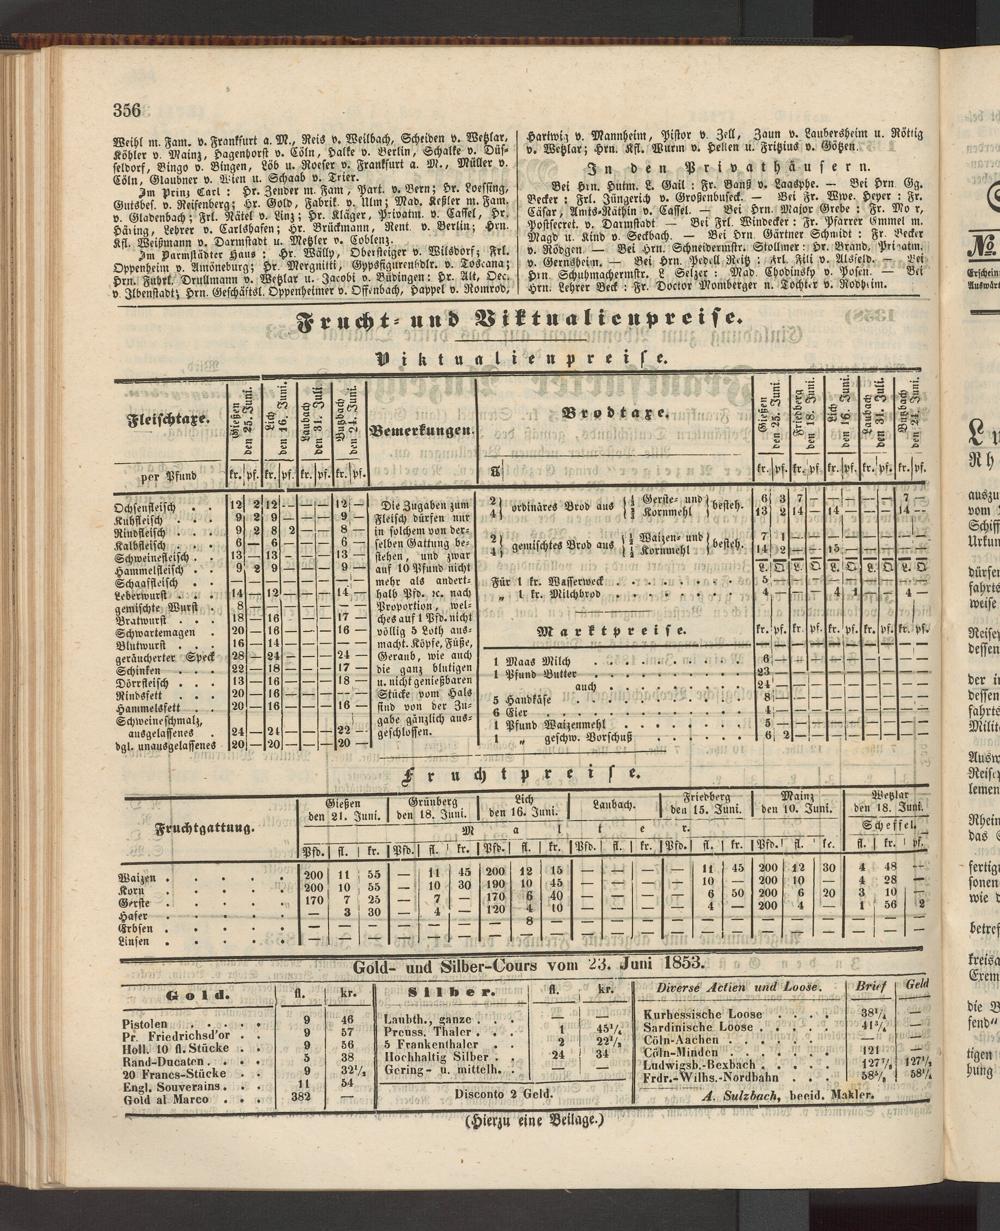 356
Weihl m. Fam. v. Frankfurt a. M., Reis v. Weilbach, Scheiden v. Wetzlar,
Köhler v. Mainz, Hagenhorst v. Cöln, Halke v. Berlin, Schalke v. Düs-
seldorf, Bingo v. Bingen, Löb u. Roeser v. Frankfurt a. M., Müller v.
Cöln, Glaubner v. Wien u. Schaab v. Trier.
Im Prinz Carl: Hr. Zender m. Fam, Part. v. Bern; Hr. Loessing,
Gutsbes. v. Reifenberg; Hr. Gold, Fabrik. v. Ulm; Mad. Keßler m. Fam.
v. Gladenbach; Frl. Nätel v. Linz; Hr. Kläger, Privatm. v. Cassel, Hr.
Häring, Lehrer v. Carlshafen; Hr. Brückmann, Rent. v. Berlin; Hrn.
Kfl. Weißmann v. Darmstadt u. Metzler v. Coblenz.
Im Darmstädter Haus: Hr. Wälly, Obersteiger v. Wilsdorf; Frl.
Oppenheim v. Amöneburg; Hr. Mergnitti, Gypsfigurenhdlr. v. Toscana;
Hrn. Fuhrl. Drullmann v. Wetzlar u. Jacobi v. Büdingen; Hr. Alt, Oec.
v Ilbenstadt; Hrn. Geschäftsl. Oppenheimer v. Offenbach, Happel v. Romrod,
Hartwig v. Mannheim, Pistor v. Zell, Zaun v. Laubersheim u. Röttig
v. Wetzlar; Hrn. Kfl. Wurm v. Hessen u. Fritzius v. Götzen.
In den Privathäusern.
Bei Hrn. Hutm. L. Gail: Fr. Ganß v. Laasphe. — Bei Hrn Gg.
Becker: Frl. Jüngerich v. Großenbuseck. — Bei Fr. Wwe. Heyer: Fr.
Cäsar, Amts-Räthin v. Cassel. — Bei Hrn. Major Grebe: Fr. Mo r,
Postsecret. v. Darmstadt — Bei Frl. Windecker: Fr. Pfarrer Emmel m.
Magd u. Kind v. Seckbach. — Bei Hrn. Gärtner Schmidt: Fr. Becker
v. Rödgen. — Bei Hrn. Schneidermstr. Stollmer: Hr. Brand, Privatm.
v. Gernsheim. — Bei Hrn. Pedell Reitz: Frl. Fili v. Alsfeld. — Bei
Hrn Schuhmachermstr. L Selzer: Mad. Chodinsky v. Posen. — Bei
Hrn. Lehrer Beck: Fr. Doctor Momberger n. Tochter v. Rodheim.
Frucht- und Viktualienpreise.
Viktualienpreise.
Fleischtaxe. Gießen den 25. Juni. Lich den 16. Juni. Laubach den 31. Juli Butzbach den 24. Juni. Bemerkungen.
per Pfund kr. pf. kr. pf. kr. pf. kr. pf.
Ochsenfleisch . . 12 2 12 — — — 12 —
Kuhfleisch . . . 9 2 9 — — — 9 —
Rindfleisch . . . 9 2 8 2 — — 8 —
Kalbfleisch . . . 6 — 6 — — — 6 —
Schweinefleisch . 13 — 13 — — — 13 —
Hammelfleisch . . 9 2 9 — — — 9 —
Schaaffleisch . . — — — — — — — —
Leberwurst . . . 14 — 12 — — — 14 —
gemischte Wurst . 8 — — — — — — —
Bratwurst . . . 18 — 16 — — — 17 —
Schwartemagen . 20 — 16 — — — 16 —
Blutwurst . . . 16 — 14 — — — — —
geräucherter Speck 28 — 24 — — — 24 —
Schinken . . . 22 — 18 — — — 17 —
Dörrfleisch . . . 13 — 16 — — — 18 —
Rindsfett . . . 20 — 16 — — — — —
Hammelsfett . . 20 — 16 — — — 16 —
Schweineschmalz,
ausgelassenes . 24 — 24 — — — 22 —
dgl. unausgelassenes 20 — 20 — — — 20 —
Die Zugaben zum
Fleisch dürfen nur
in solchem von der-
selben Gattung be-
stehen, und zwar
auf 10 Pfund nicht
mehr als andert-
halb Pfd. ec. nach
Proportion, wel-
ches auf 1 Pfd. nicht
völlig 5 Loth aus-
macht. Köpfe, Füße,
Geraub, wie auch
die ganz blutigen
u. nicht genießbaren
Stücke vom Hals
sind von der Zu-
gabe gänzlich aus-
geschlossen.
Brodtaxe. Gießen den 25. Juni. Friedberg den 18. Juni. Lich den 16. Juni. Laubach den 31. Juli. Butzbach den 24. Juni.
℔ kr. pf. kr. pf. kr. pf. kr. pf. kr. pf.
2 ordinäres Brod aus Gerste- und besteh. 6 3 7 — — — — — 7 —
4 Kornmehl 13 2 14 — 14 — — — 14 —
2 gemischtes Brod aus Waizen- und besteh. 7 1 — — — — — — — —
4 Kornmehl 14 2 — — 15 — — — — —
L. Q. L. Q. L. Q. L. Q. L. Q.
Für 1 kr. Wasserweck . . . . . . 5 — — — — — — — — —
„ 1 kr. Milchbrod . . . . . . 4 — — — 4 1 — — 4 —
Marktpreise. kr. pf. kr. pf. kr. pf. kr. pf. kr. pf.
1 Maas Milch . . . . . . . 6 — — — — — — — — —
1 Pfund Butter . . . . . . . 23 — — — — — — — — —
auch 24 — — — — — — — — —
5 Handkäse . . . . . . . 8 — — — — — — — — —
6 Eier . . . . . . . 4 — — — — — — — — —
1 Pfund Waizenmehl . . . . . . 5 — — — — — — — — —
1 „ geschw. Vorschuß . . . . . 6 2 — — — — — — — —
Fruchtpreise.
Fruchtgattung. Gießen den 21. Juni. Grünberg den 18. Juni. Lich den 16. Juni. Laubach. Friedberg den 15. Juni. Mainz den 10. Juni. Wetzlar den 18. Juni.
Malter. Scheffel.
Pfd. fl. kr. Pfd. fl. kr. Pfd. fl. kr. Pfd. fl. kr. Pfd. fl. kr. Pfd. fl. kr. fl. kr. pf.
Waizen . . . . . 200 11 55 — 11 45 200 12 15 — — — — 11 45 200 12 30 4 48 —
Korn . . . . . 200 10 55 — 10 30 190 10 45 — — — — 10 — 200 10 — 4 28 —
Gerste . . . . . 170 7 25 — 7 — 170 6 40 — — — — 6 50 200 6 20 3 10 —
Hafer . . . . . — 3 30 — 4 — 120 4 10 — — — — 4 — 200 4 — 1 56 2
Erbsen . . . . . — — — — — — — 8 — — — — — — — — — — — — —
Linsen . . . . . — — — — — — — — — — — — — — — — — — — — —
Gold- und Silber-Cours vom 23. Juni 1853.
Gold. fl. kr.
Pistolen . . . . . 9 46
Pr. Friedrichsd'or . . 9 57
Holl. 10 fl. Stücke . . 9 56
Rand-Ducaten . . . 5 38
20 Francs-Stücke . . 9 32½
Engl. Souverains . . . 11 54
Gold al Marco . . . 382 —
Silber. fl. kr.
Laubth., ganze . . . — —
Preuss. Thaler . . . 1 45¼
5 Frankenthaler . . 2 22½
Hochhaltig Silber . . 24 34
Gering- u. mittelh. . — —
Disconto 2 Geld.
Diverse Actien und Loose. Brief Geld
Kurhessische Loose . . . 38¼ —
Sardinische Loose . . . . 41¾ —
Cöln-Aachen . . . . . — —
Cöln-Minden . . . . . 121 —
Ludwigsb.-Bexbach . . . . 127⅞ 127⅜
Frdr.-Wilhs.-Nordbahn . . . 58⅝ 58¼
A. Sulzbach, beeid. Makler.
(Hierzu eine Beilage.)